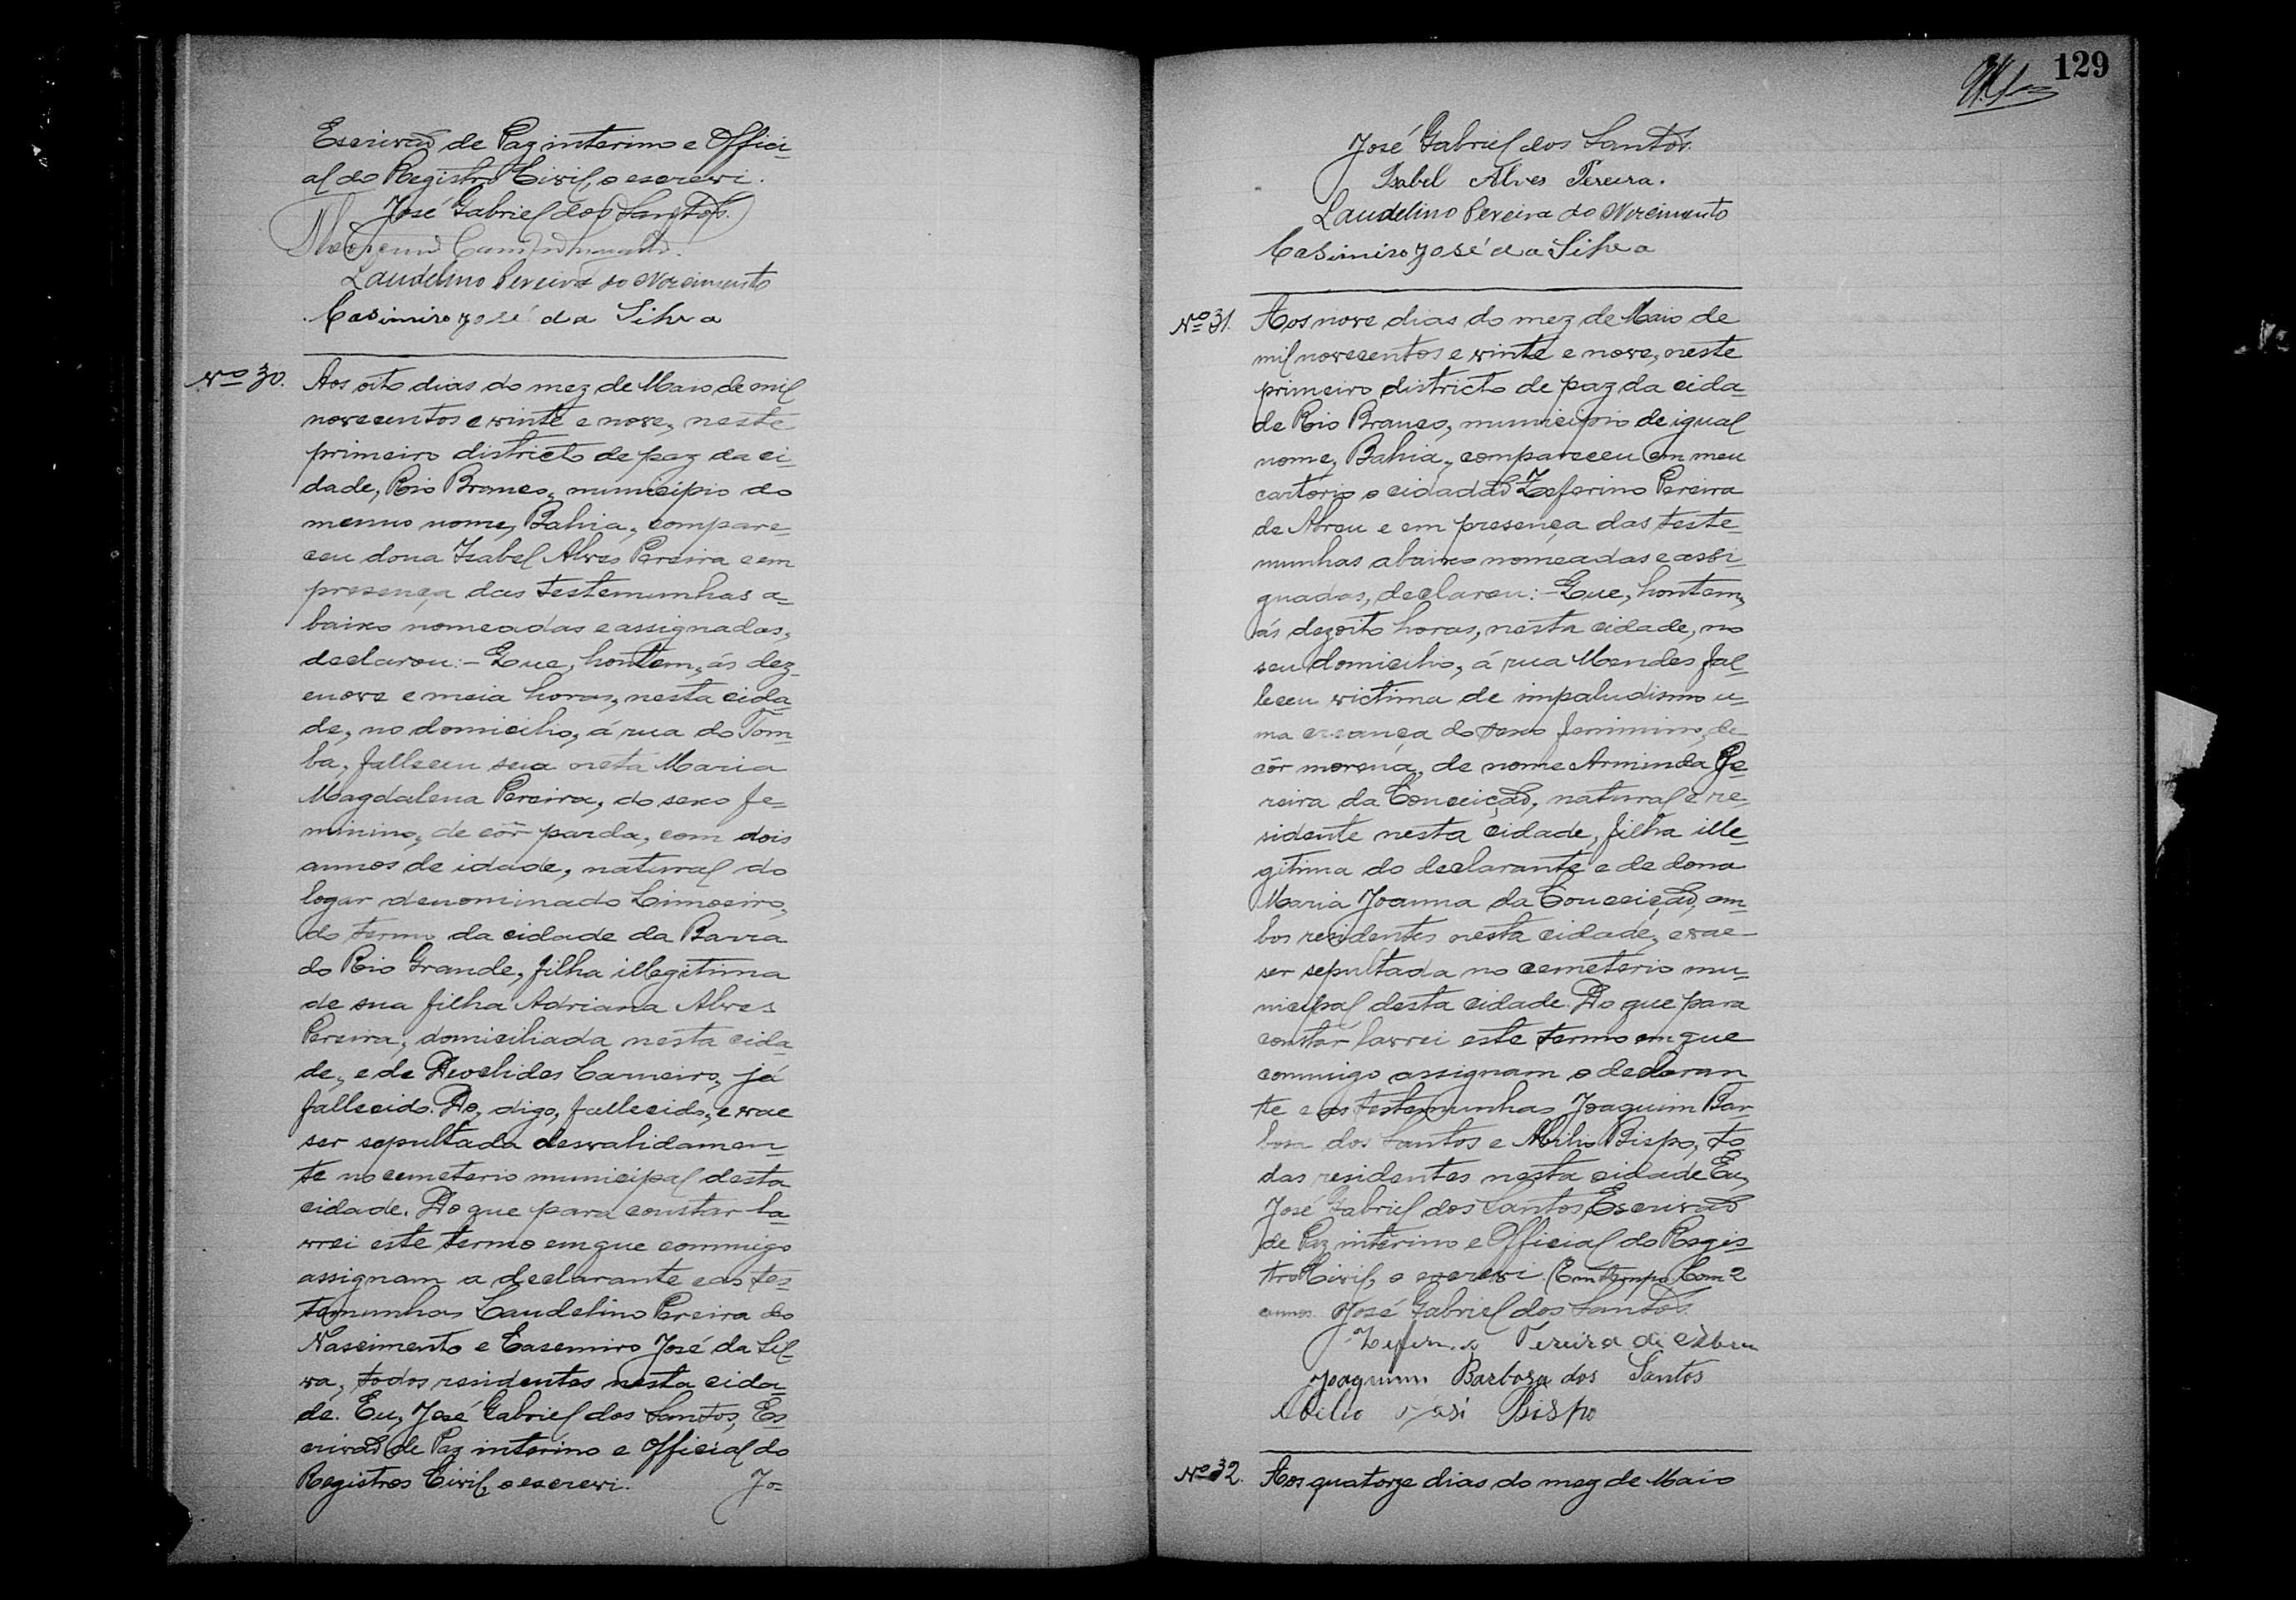 Escrivão de Paz interino e Offici-
al do Registro Civil, o escrevi.
José Gabriel dos Santos.
Laudelino Pereira do Nascimento
Casimiro José da Silva
Nº 30. Aos oito dias do mez de Maio de mil
novecentos e vinte e nove, neste
primeiro districto de paz da ci-
dade, Rio Branco, municipio do
mesmo nome, Bahia, compare-
ceu dona Isabel Alves Pereira e em
presença das testemunhas a-
baixo nomeadas e assignadas,
declarou:- Que, hontem, ás dez-
enove e meia horas, nesta cida-
de, no domicilio, á rua do Tom-
ba, falleceu sua neta Maria
Magdalena Pereira, do sexo fe-
minino, de côr parda, com dois
annos de idade, natural do
logar denominado Limoeiro,
do termo da cidade da Barra
do Rio Grande, filha illegitima
de sua filha Adriana Alves
Pereira, domiciliada nesta cida-
de, e de Deoclides Carneiro, já
fallecido. Do, digo, fallecido, e vae
ser sepultada desvalidamen-
te no cemeterio municipal desta
cidade. Do que para constar la-
vrei este termo em que commigo
assignam a declarante e as tes-
temunhas Laudelino Pereira do
Nascimento e Casemiro José da Sil-
va, todos residentes nesta cida-
de. Eu, José Gabriel dos Santos, Es-
crivão de Paz interino e Official do
Registros Civil, o escrevi. Jo-
129
José Gabriel dos Santos.
Isabel Alves Pereira.
Laudelino Pereira do Nascimento
Casimiro José da Silva
Nº 31. Aos nove dias do mez de Maio de
mil novecentos e vinte e nove, neste
primeiro districto de paz da cida-
de Rio Branco, municipio de igual
nome, Bahia, compareceu em meu
cartorio o cidadão Zeferino Pereira
de Abreu e em presença das teste-
munhas abaixo nomeadas e assi-
gnadas, declarou:- Que, hontem,
ás dezoito horas, nesta cidade, no
seu domicilio, á rua Mendes fal-
leceu victima de impaludismo u-
ma creança do sexo feminino, de
côr morena, de nome Arminda Pe-
reira da Conceição, natural e re-
sidente nesta cidade, filha ille-
gitima do declarante e de dona
Maria Joanna da Conceição, am-
bos residentes nesta cidade, e vae
ser sepultada no cemeterio mu-
nicipal desta cidade. Do que para
constar lavrei este termo em que
commigo assignam o declaran-
te e as testemunhas Joaquim Bar-
bosa dos Santos e Abilio Bispo, to-
das residentes nesta cidade Eu,
José Gabriel dos Santos, Escrivão
de Paz interino e Official do Regis-
tro Civil, o escrevi. Em tempo Com 2
annos. José Gabriel dos Santos.
Zeferino Pereira de Abreu
Joaquim Barboza dos Santos
Abilio José Bispo
Nº 32. Aos quatorze dias do mez de Maio